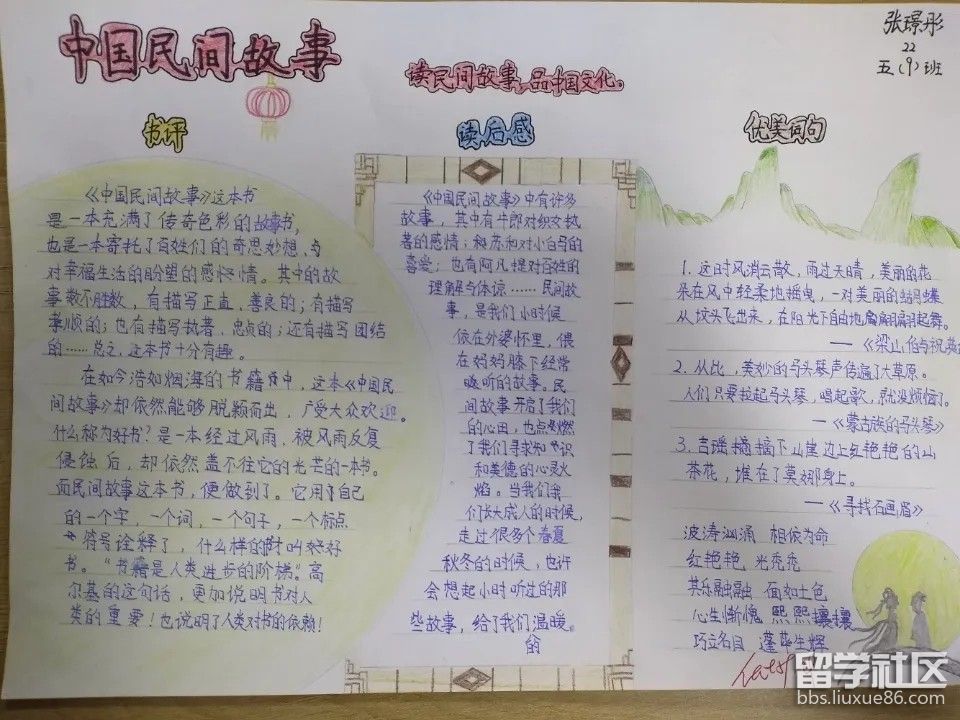 中国民间故事
读民间故事,品中国文化。
张璟彤
22
五(9)班
书评
《中国民间故事》这本书
是一本充满了传奇色彩的故事书,
也是一本寄托了百姓们的奇思妙想、与
对幸福生活的盼望的感怀情。其中的故
事数不胜数,有描写正直、善良的;有描写
孝顺的;也有描写执着、忠贞的;还有描写团结
的……总之,这本书十分有趣。
在如今浩如烟海的书籍中,这本《中国民
间故事》却依然能够脱颖而出,广受大众欢迎。
什么称为好书?是一本经过风雨,被风雨反复
侵蚀后,却依然盖不住它的光芒的一本书。
而民间故事这本书,便做到了。它用自己
的一个字,一个词,一个句子,一个标点
符号诠释了,什么样的书叫好
书。“书籍是人类进步的阶梯。”高
尔基的这句话,更加说明书对人
类的重要!也说明了人类对书的依赖!
读后感
《中国民间故事》中有许多
故事,其中有牛郎对织女执
著的感情;和苏和对小白马的
喜爱;也有阿凡提对百姓的
理解与体谅……民间故
事,是我们小时候
依在外婆怀里,偎
在妈妈膝下经常
聆听的故事。民
间故事开启了我们
的心田,也点燃
了我们寻求知识
和美德的心灵火
焰。当我们
们长大成人的时候,
走过很多个春夏
秋冬的时候,也许
会想起小时听过的那
些故事,给了我们温暖。
的
优美词句
1.这时风消云散,雨过天晴,美丽的花
朵在风中轻柔地摇曳,一对美丽的蝴蝶
从坟头飞出来,在阳光下自由地翩翩起舞。
——《梁山伯与祝英台
2.从此,美妙的马头琴声传遍了大草原。
人们只要拉起马头琴,唱起歌,就没烦恼了。
——《蒙古族的马头琴》
3.吉瑶摘摘下山崖边上红艳艳的山
茶花,堆在了莫娜身上。
——《寻找石画眉》
波涛汹涌 相依为命
红艳艳 光秃秃
其乐融融 面如土色
心生惭愧 熙熙攘攘
巧立名目 蓬荜生辉
留学社区
bbs.liuxue86.com